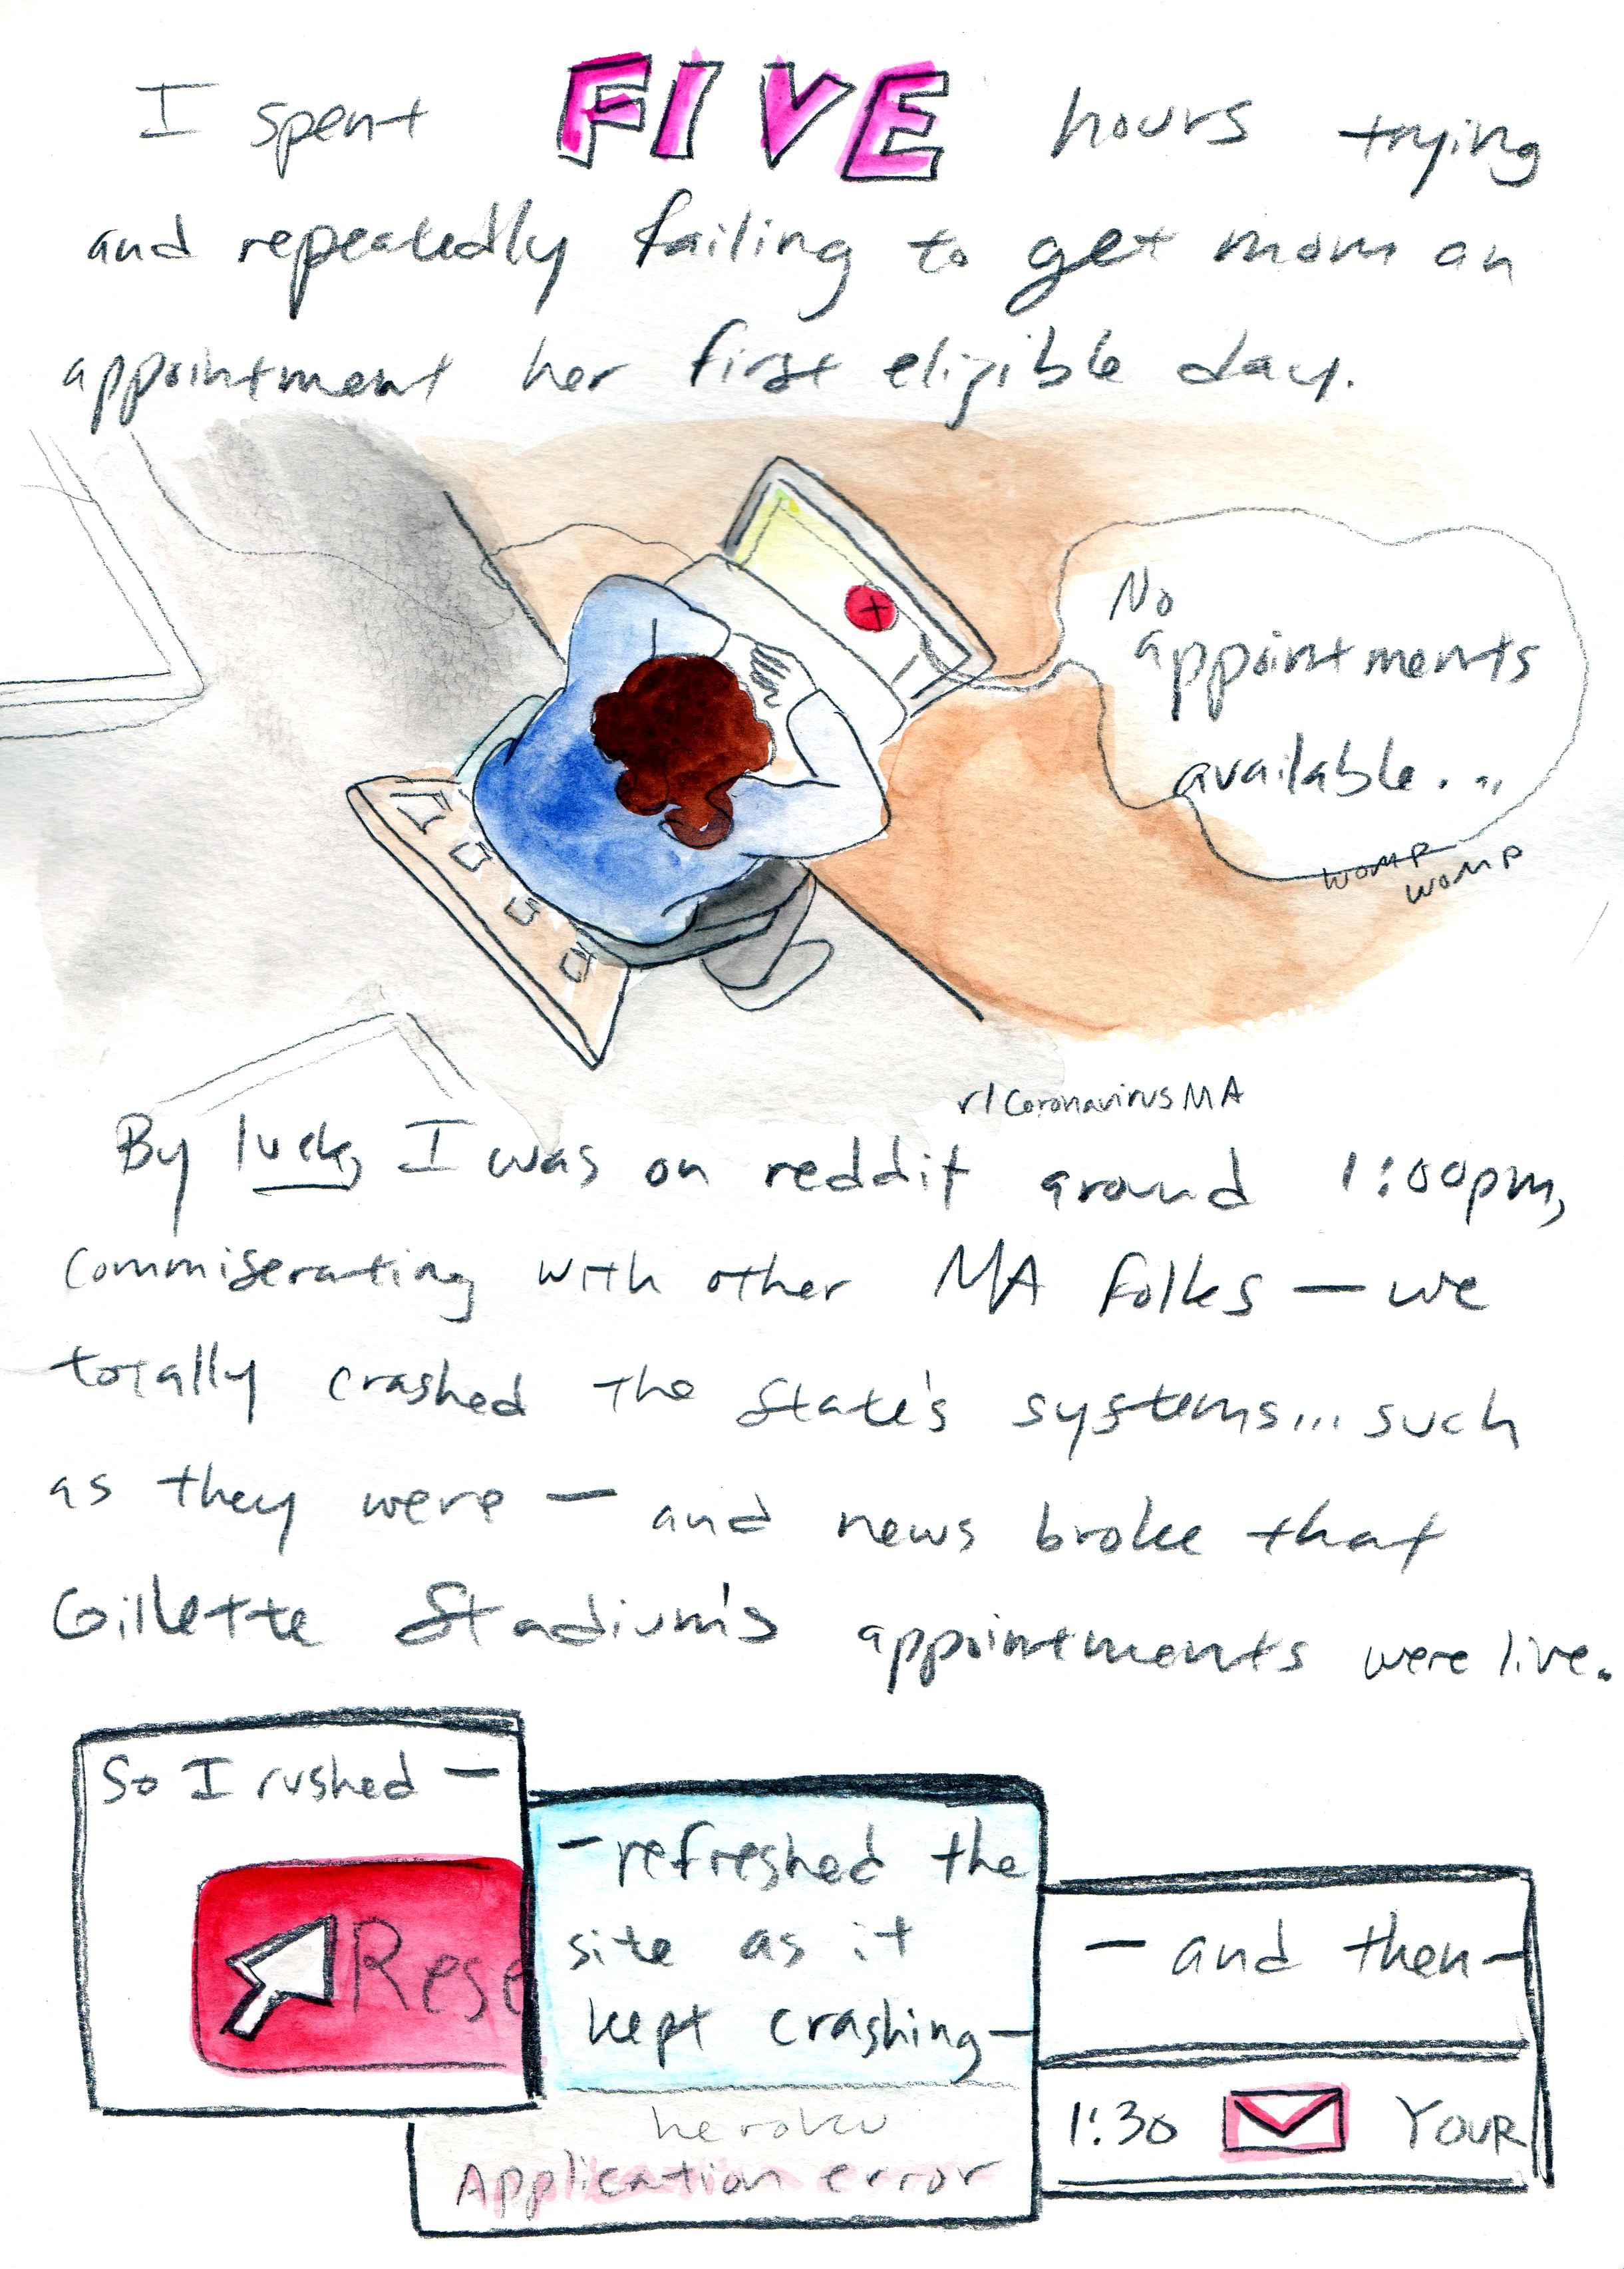 I spent FIVE hours trying
and repeatedly failing to get mom an
appointment her first eligible day.
No
appointments
available...
womp
womp
r/CoronavirusMA
By luck, I was on reddit around 1:00pm,
commiserating with other MA folks — we
totally crashed the State's systems... such
as they were — and news broke that
Gillette Stadium's appointments were live.
So I rushed —
Rese
— refreshed the
site as it
kept crashing —
heroku
Application error
— and then —
1:30 YOUR